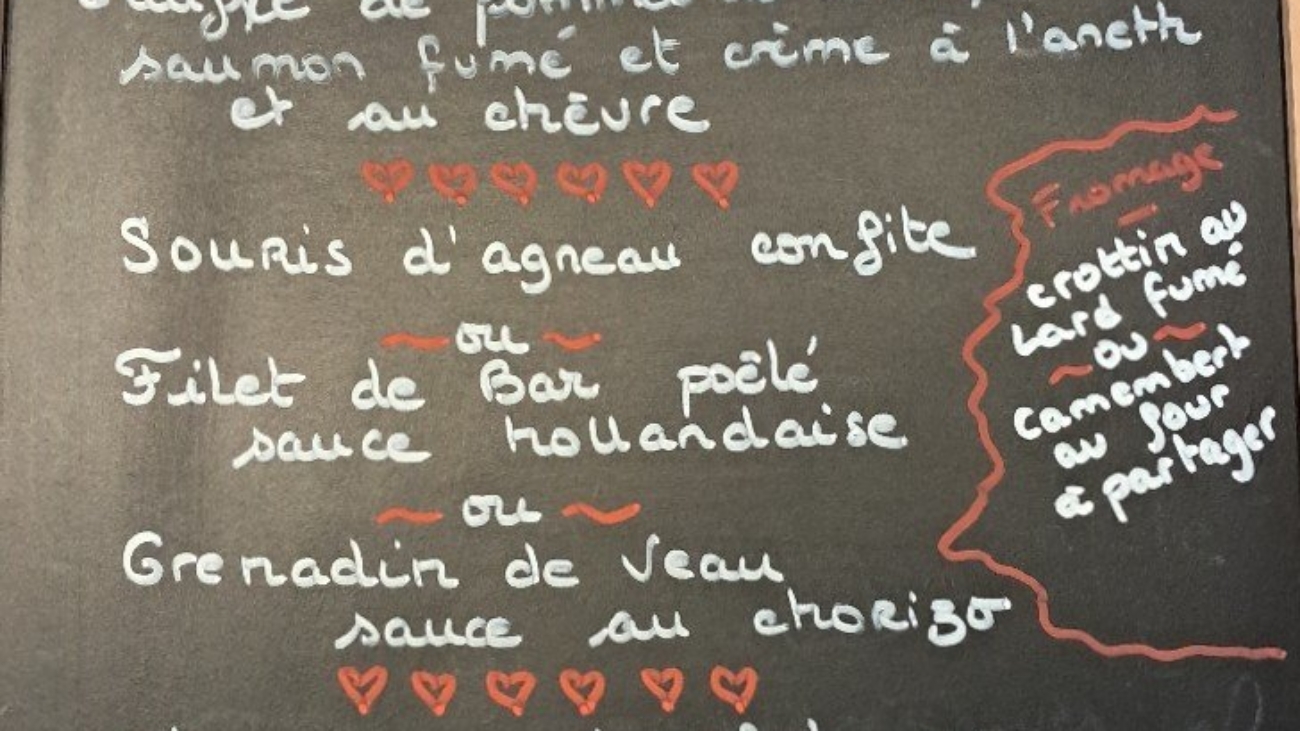 de pommes de
saumon fumé et crème à l'aneth
et au chèvre
Souris d'agneau confite
~ ou ~
Filet de Bar poêlé
sauce hollandaise
~ ou ~
Grenadin de Veau
sauce au chorizo
Fromage
crottin au
Lard fumé
~ ou ~
Camembert
au four
à partager